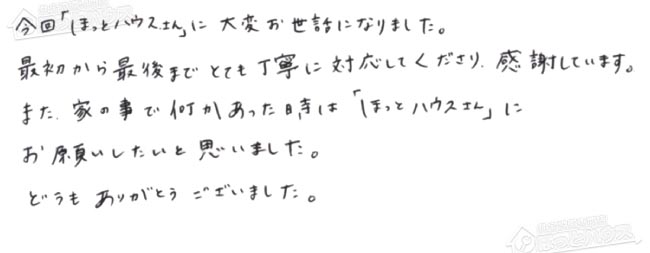 今回「ほっとハウスさん」に 大変お世話になりました。
最初から最後まで とても丁寧に対応してくださり、感謝しています。
また、家の事で何かあった時は「ほっとハウスさん」に
お願いしたいと思いました。
どうも ありがとう ございました。
ほっとハウス